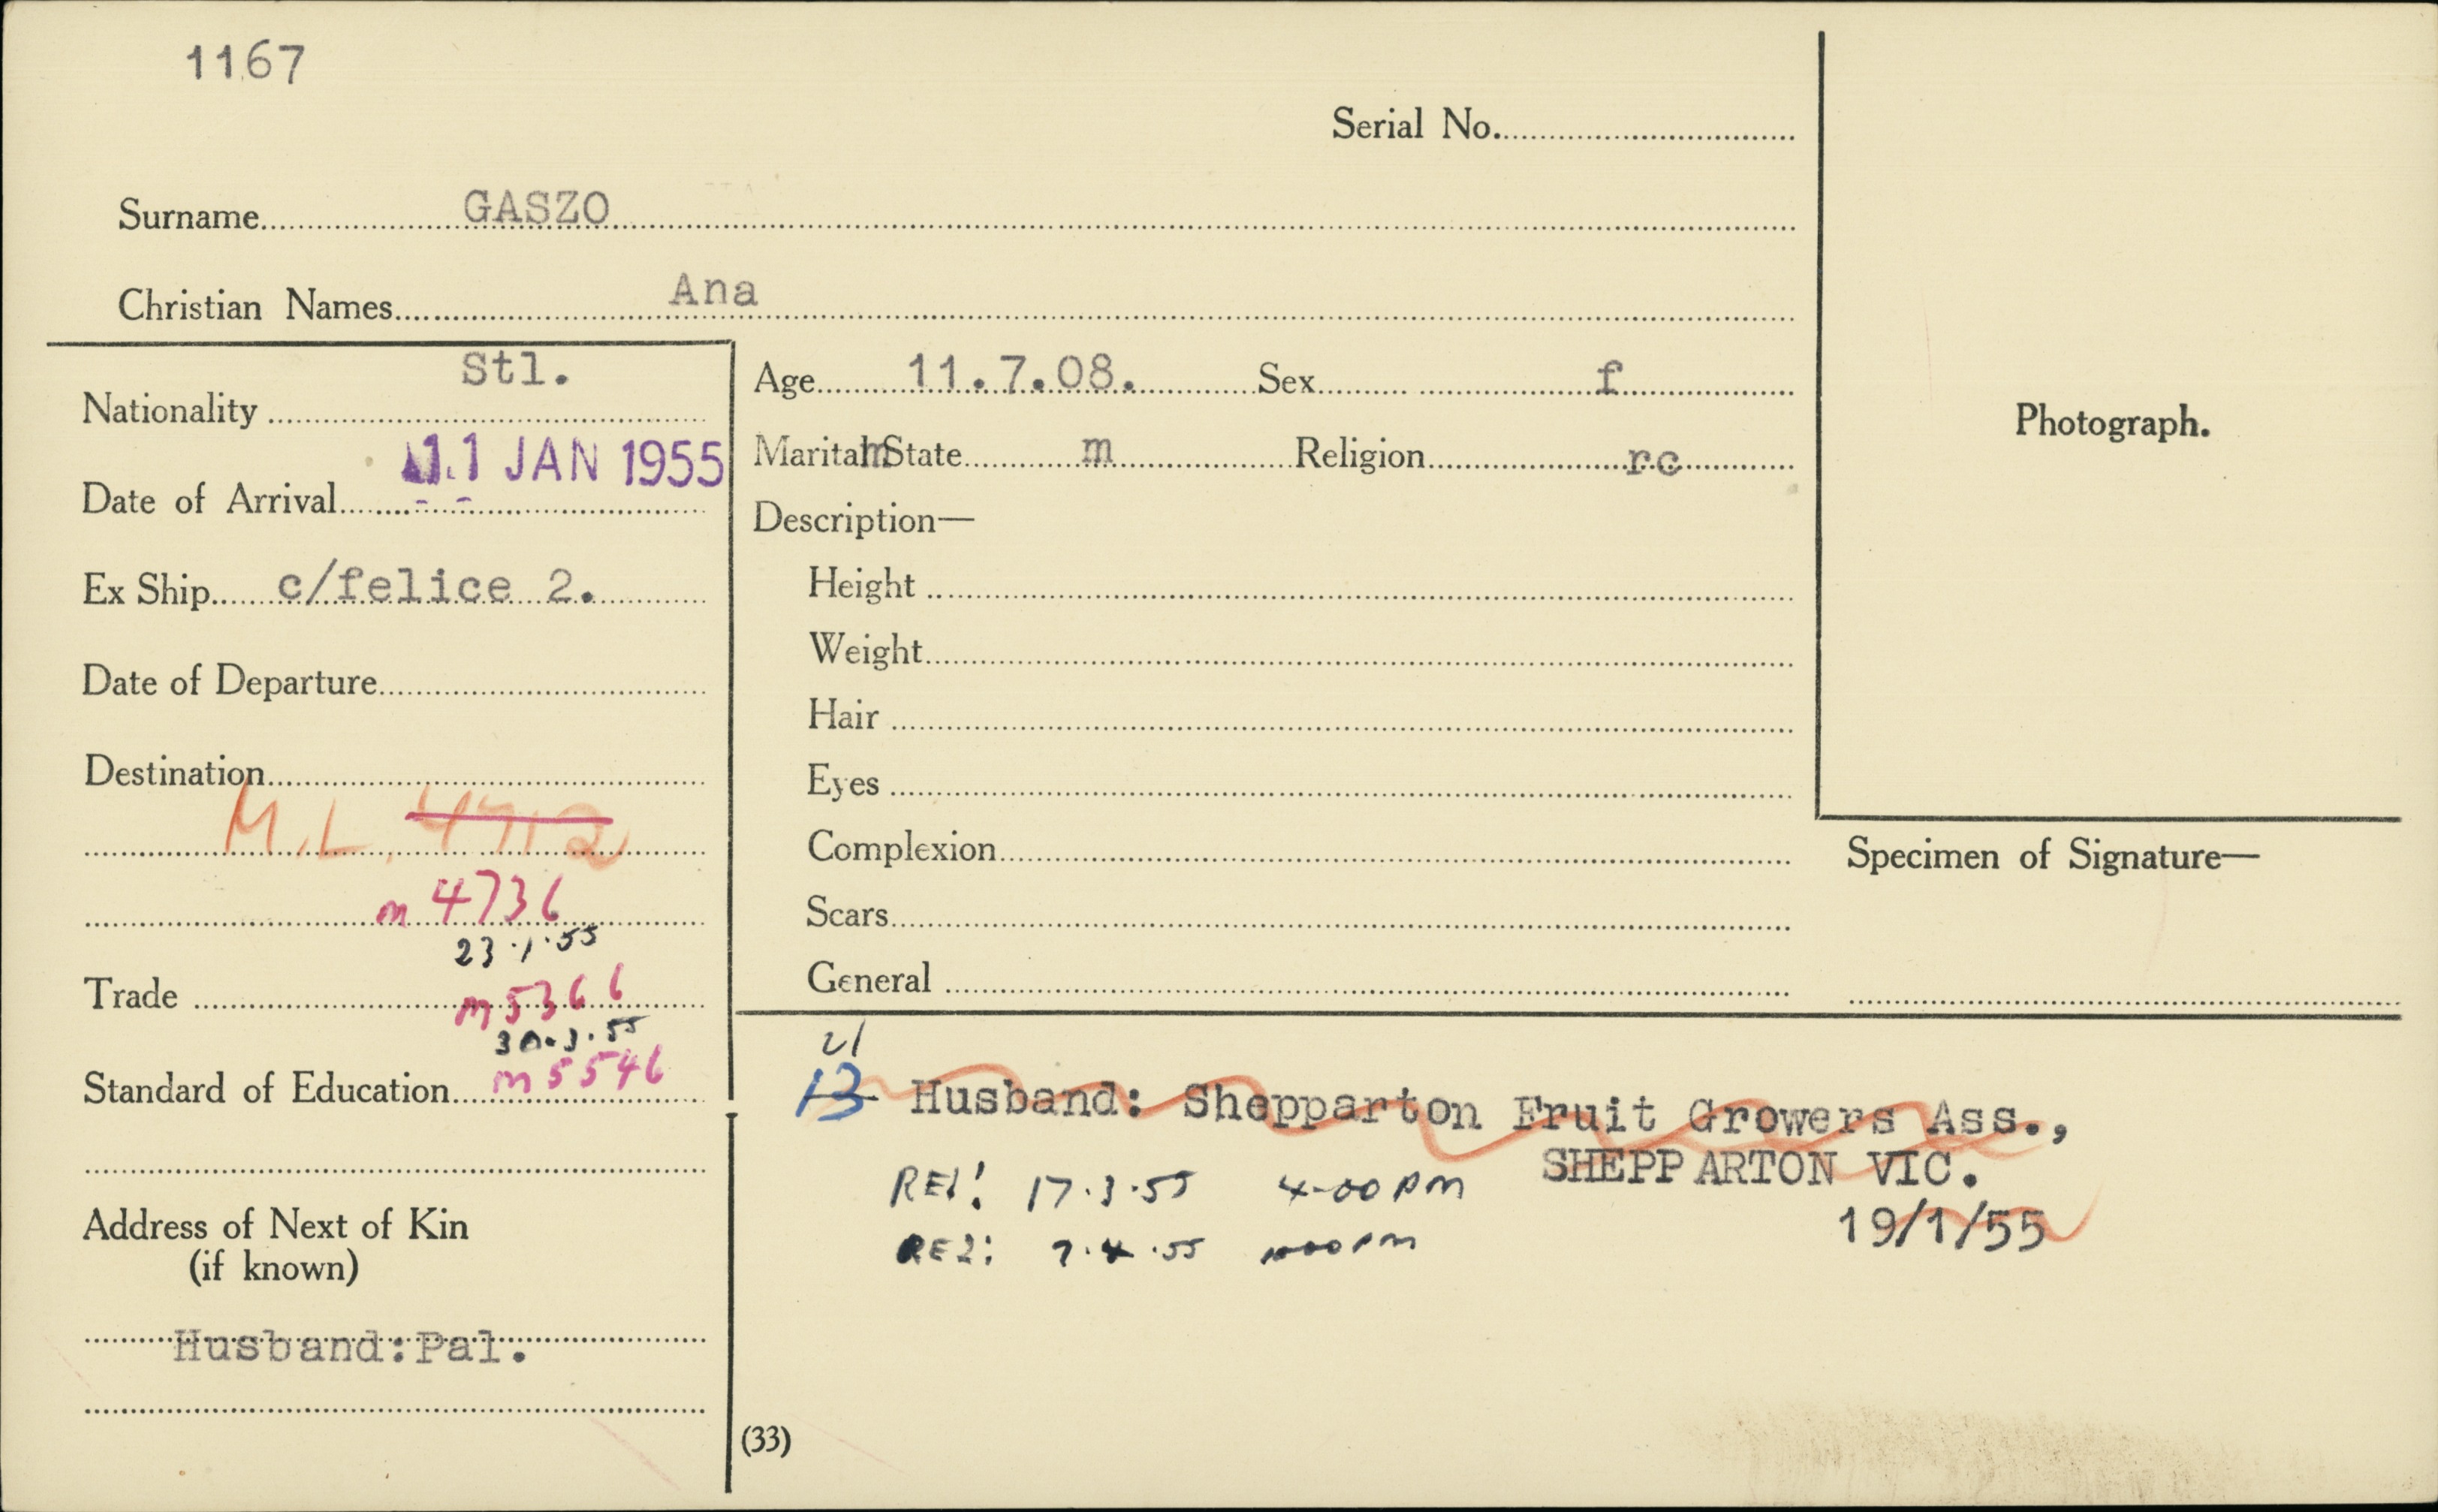 1167
Serial No.
Surname GASZO
Christian Names Ana
Nationality Stl.
Date of Arrival 11 JAN 1955
Ex Ship c/felice 2.
Date of Departure
Destination
M.L. 4712
m 4736
23.1.55
Trade m 5366
30.3.55
Standard of Education m 5546
Address of Next of Kin
(if known)
Husband:Pal.
Age 11.7.08. Sex f
Marital State m Religion rc
Description—
Height
Weight
Hair
Eyes
Complexion
Scars
General
Photograph.
Specimen of Signature—
21
13 Husband: Shepparton Fruit Growers Ass.,
SHEPPARTON VIC.
17.3.55 4-00 PM
19/1/55
7.4.55
(33)